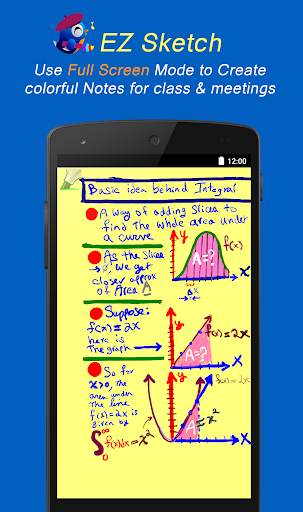 EZ Sketch
Use Full Screen Mode to Create
colorful Notes for class & meetings
12:00
Basic idea behind Integral
A way of adding Slices to
find the whole area under
a curve
f(x)
A=?
Δx
x
As the Slices
→0, we get
closer approx
of Area A
y
f(x)=2x
A=?
x
Suppose:
f(x)=2x
here is
The graph →
So for
x>0, The
area under
The line
f(x)=2x is
given by
∫₀ f(x)dx = x²
f(x)=2x
x
A=x²
x²